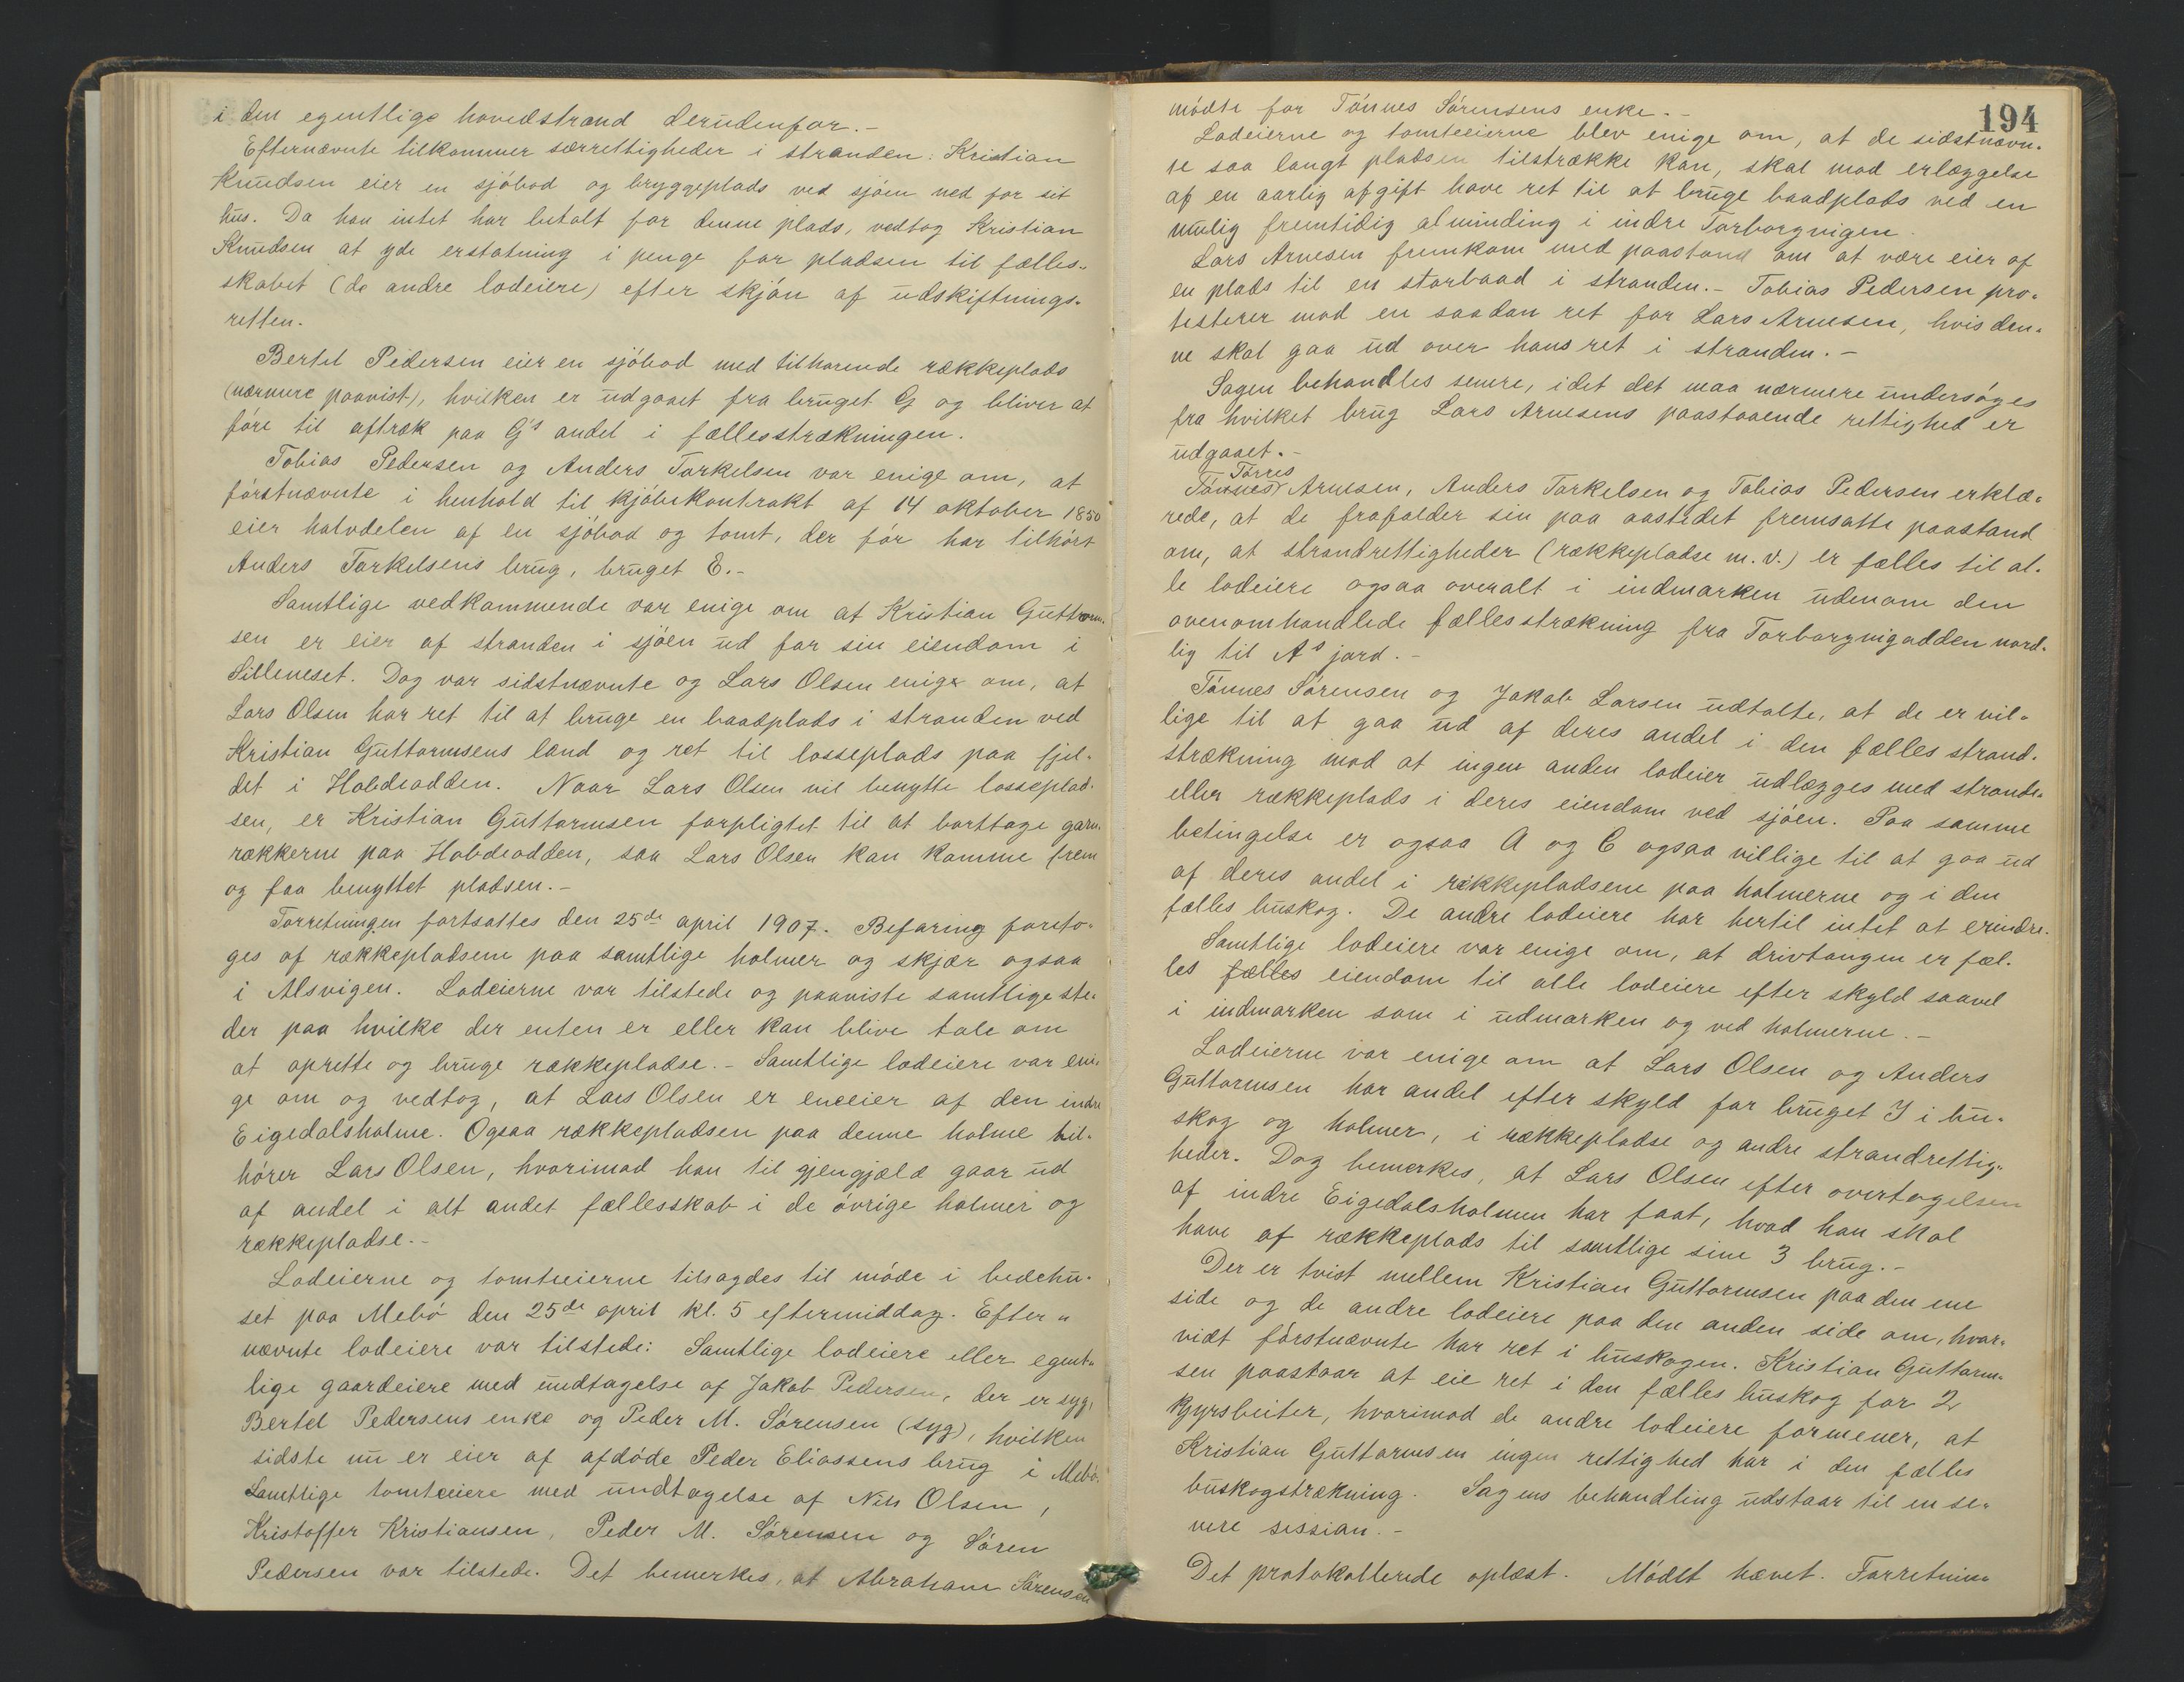 i den egentlige hovedstrand derudenfor.-
Efternævnte tilkommer særrettigheder i stranden: Kristian
Knudsen eier en sjøbod og bryggeplads ved sjøen ned for sit
hus. Da han intet har betalt for denne plads, vedtog Kristian
Knudsen at yde erstatning i penge for pladsen til fælles-
skabet (de andre lodeiere) efter skjøn af udskiftnings-
retten.
Bertel Pedersen eier en sjøbod med tilhørende rækkeplads
(nærmere paavist), hvilken er udgaaet fra bruget G og bliver at
føre til aftræk paa G's andel i fællesstrækningen.
Tobias Pedersen og Anders Torkelsen var enige om, at
førstnævnte i henhold til kjøbekontrakt af 14 oktober 1850
eier halvdelen af en sjøbod og tomt, der før har tilhørt
Anders Torkelsens brug, bruget E.-
Samtlige vedkommende var enige om at Kristian Guttorm-
sen er eier af stranden i sjøen ud for sin eiendom i
Silleneset. Dog var sidstnævnte og Lars Olsen enige om, at
Lars Olsen har ret til at bruge en baadplads i stranden ved
Kristian Guttormsens land og ret til losseplads paa fjel-
det i Habdeodden. Naar Lars Olsen vil benytte losseplad-
sen, er Kristian Guttormsen forpligtet til at borttage garn-
rækkerne paa Habdeodden, saa Lars Olsen kan komme frem
og faa benyttet pladsen.-
Forretningen fortsattes den 25de april 1907. Befaring foreto-
ges af rækkepladsene paa samtlige holmer og skjær ogsaa
i Alsvigen. Lodeierne var tilstede og paaviste samtlige ste-
der paa hvilke der enten er eller kan blive tale om
at oprette og bruge rækkepladse.- Samtlige lodeiere var eni-
ge om og vedtog, at Lars Olsen er eneeier af den indre
Eigedalsholme. Ogsaa rækkepladsen paa denne holme til-
hører Lars Olsen, hvorimod han til gjengjæld gaar ud
af andel i alt andet fællesskab i de øvrige holmer og
rækkepladse.-
Lodeierne og tomteeierne tilsagdes til møde i bedehu-
set paa Mebø den 25de april kl. 5 eftermiddag. Efter-
nævnte lodeiere var tilstede: Samtlige lodeiere eller egent-
lige gaardeiere med undtagelse af Jakob Pedersen, der er syg,
Bertel Pedersens enke og Peder M. Sørensen (syg), hvilken
sidste nu er eier af afdøde Peder Eliassens brug i Mebø.
Samtlige tomteeiere med undtagelse af Nils Olsen,
Kristoffer Kristiansen, Peder M. Sørensen og Søren
Pedersen var tilstede. Det bemerkes, at Abraham Sørensen
194
mødte for Tønnes Sørensens enke.-
Lodeierne og tomteeierne blev enige om, at de sidstnævn-
te saa langt pladsen tilstrække kan, skal mod erlæggelse
af en aarlig afgift have ret til at bruge baadplads ved en
mulig fremtidig alminding i indre Torborgvigen.
Lars Arnesen fremkom med paastand om at være eier af
en plads til en storbaad i stranden.- Tobias Pedersen pro-
testerer mod en saadan ret for Lars Arnesen, hvis den-
ne skal gaa ud over hans ret i stranden.-
Sagen behandles senere, idet det maa nærmere undersøges
fra hvilket brug Lars Arnesens paastaaende rettighed er
udgaaet.-
Tørres
Tønnes Arnesen, Anders Torkelsen og Tobias Pedersen erklæ-
rede, at de frafalder sin paa aastedet fremsatte paastand
om, at strandrettigheder (rækkepladse m.v.) er fælles til al-
le lodeiere ogsaa overalt i indmarken udenom den
ovenomhandlede fællesstrækning fra Torborgvigodden nord-
lig til A's jord.-
Tønnes Sørensen og Jakob Larsen udtalte, at de er vil-
lige til at gaa ud af deres andel i den fælles strand-
strækning mod at ingen anden lodeier udlægges med strand-
eller rækkeplads i deres eiendom ved sjøen. Paa samme
betingelse er ogsaa A og C ogsaa villige til at gaa ud
af deres andel i rækkepladsene paa holmerne og i den
fælles buskog. De andre lodeiere har hertil intet at erindre.
Samtlige lodeiere var enige om, at drivtangen er fæl-
les fælles eiendom til alle lodeiere efter skyld saavel
i indmarken som i udmarken og ved holmerne.-
Lodeierne var enige om at Lars Olsen og Anders
Guttormsen har andel efter skyld for bruget I i bu-
skog og holmer, i rækkepladse og andre strandrettig-
heder. Dog bemerkes, at Lars Olsen efter overtagelsen
af indre Eigedalsholmen har faat, hvad han skal
have af rækkeplads til samtlige sine 3 brug.-
Der er tvist mellem Kristian Guttormsen paa den ene
side og de andre lodeiere paa den anden side om, hvor-
vidt førstnævnte har ret i buskogen. Kristian Guttorm-
sen paastaar at eie ret i den fælles buskog for 2
kjyrsbeiter, hvorimod de andre lodeiere formener, at
Kristian Guttormsen ingen rettighed har i den fælles
buskogstrækning. Sagens behandling udstaar til en se-
nere session.-
Det protokollerede oplæst. Mødet hævet. Forretnin-